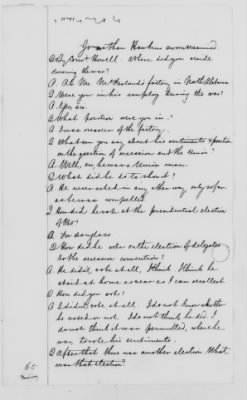 Jonathan Hawkins sworn & examined
Q By Com'r Howell. Where did you reside
during the war?
A. At Mr. factory in North Alabama
Q Were you in his employ during the war?
A. Yes, sir.
Q What position were you in?
A. I was overseer of the factory.
Q What can you say about his sentiments & position
on the question of secession and the Union?
A. Well, sir, he was a Union man.
Q What did he do to show it?
A. He never acted in any other way only so far
as he was compelled.
Q How did he vote at the presidential election
of '60?
A. For Douglass
Q How did he vote on the election of delegates
to the secession convention?
A. He didn't vote at all, I think. I think he
staid at home as near as I can recollect
Q How did you vote?
A. I didn't vote at all. I do not know whether
he voted or not. I do not think he did. I
do not think it was permitted, where he
was, to vote his sentiments.
Q After that there was another election. What
was that election?
60